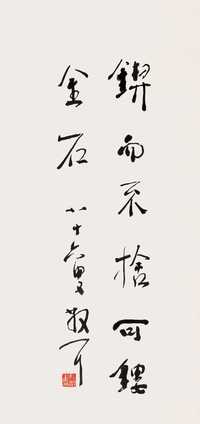 鍥而不捨可鏤
金石 八十六叟散耳